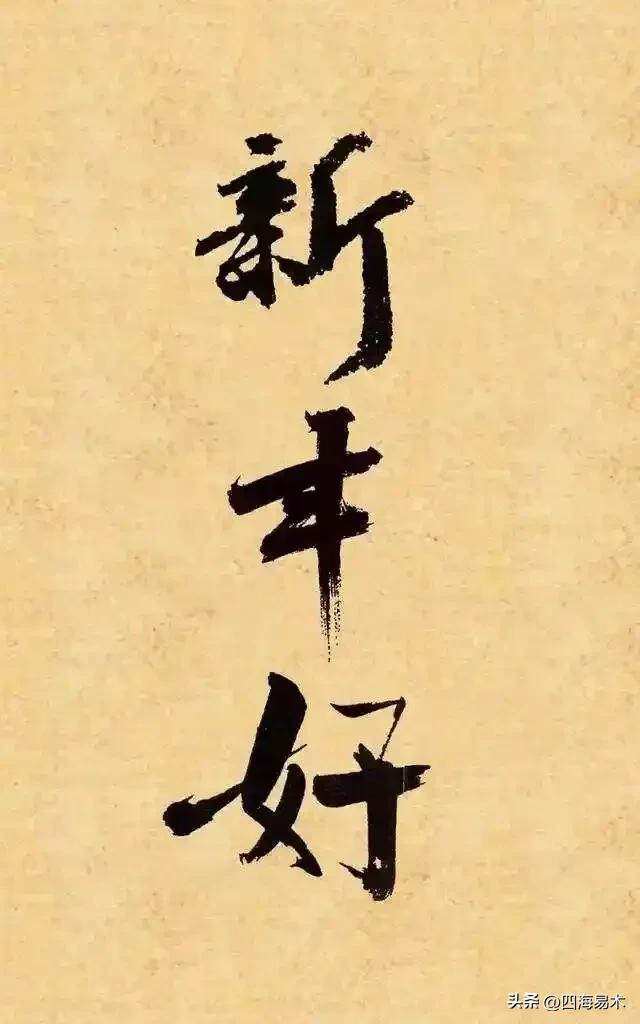 新年好
头条 @四海易木